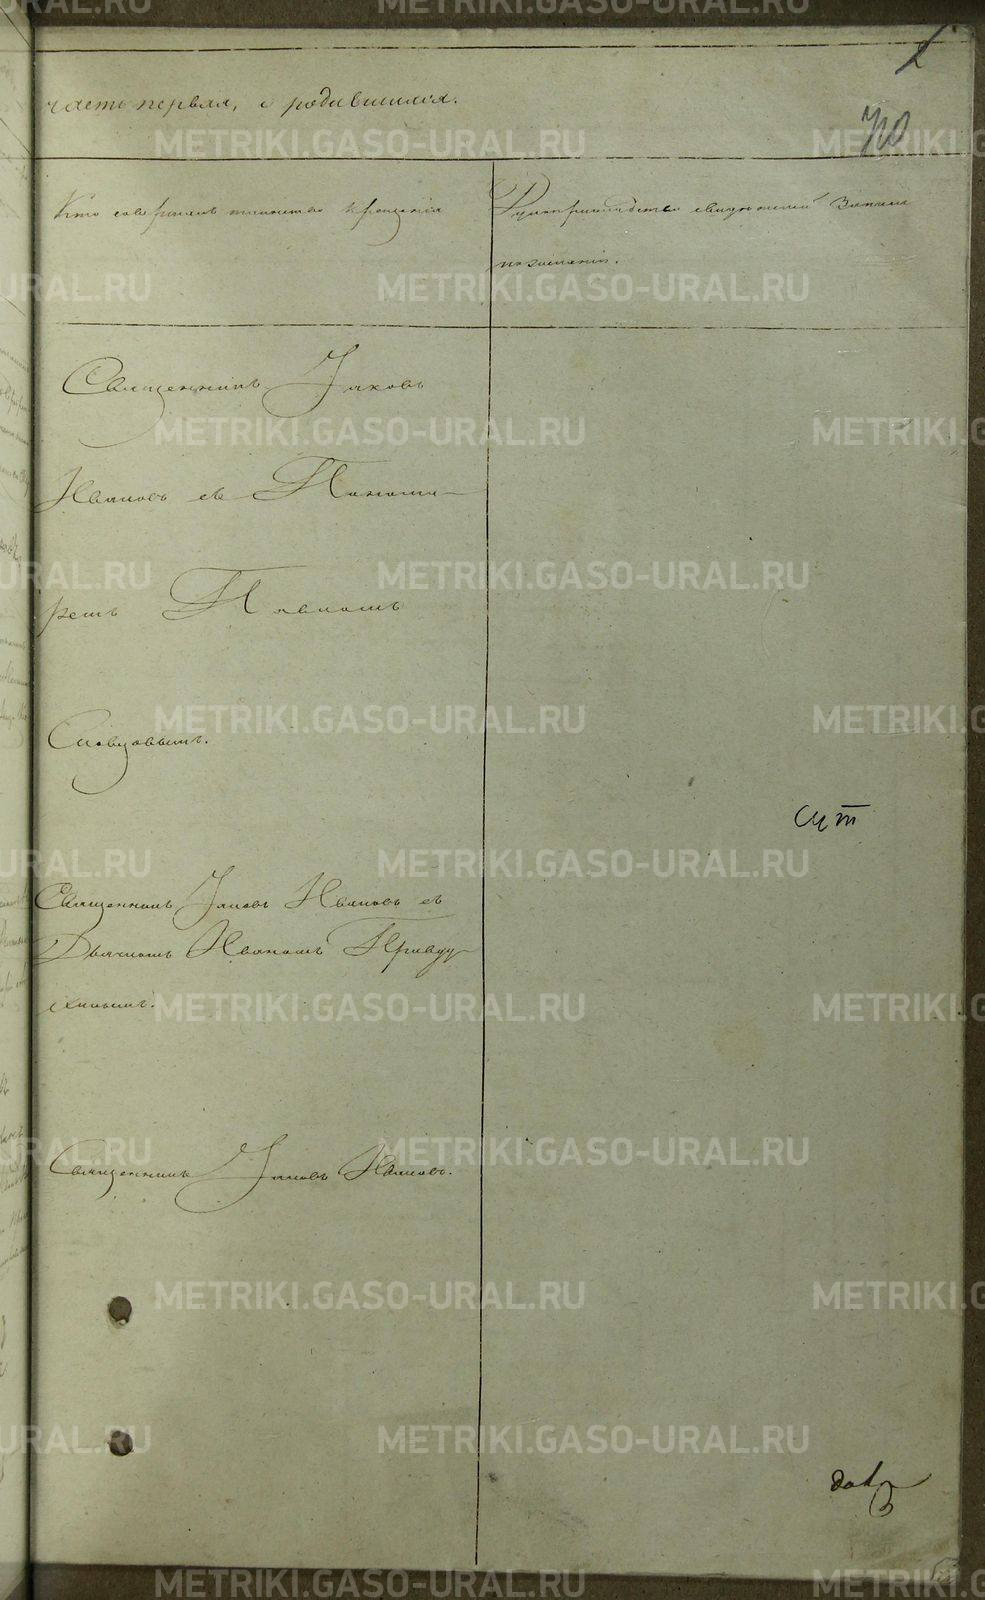 2
часть первая, о родившихся.
70
Кто совершалъ таинство крещенія
Рукоприкладство свидѣтелей записи
по желанію.
Священникъ Іаковъ
Ивановъ съ Понома-
ремъ Павломъ
Словцовымъ.
сут
Священникъ Іаковъ Ивановъ съ
Дьячкомъ Иваномъ
Священникъ Іаковъ Ивановъ.
METRIKI.GASO-URAL.RU